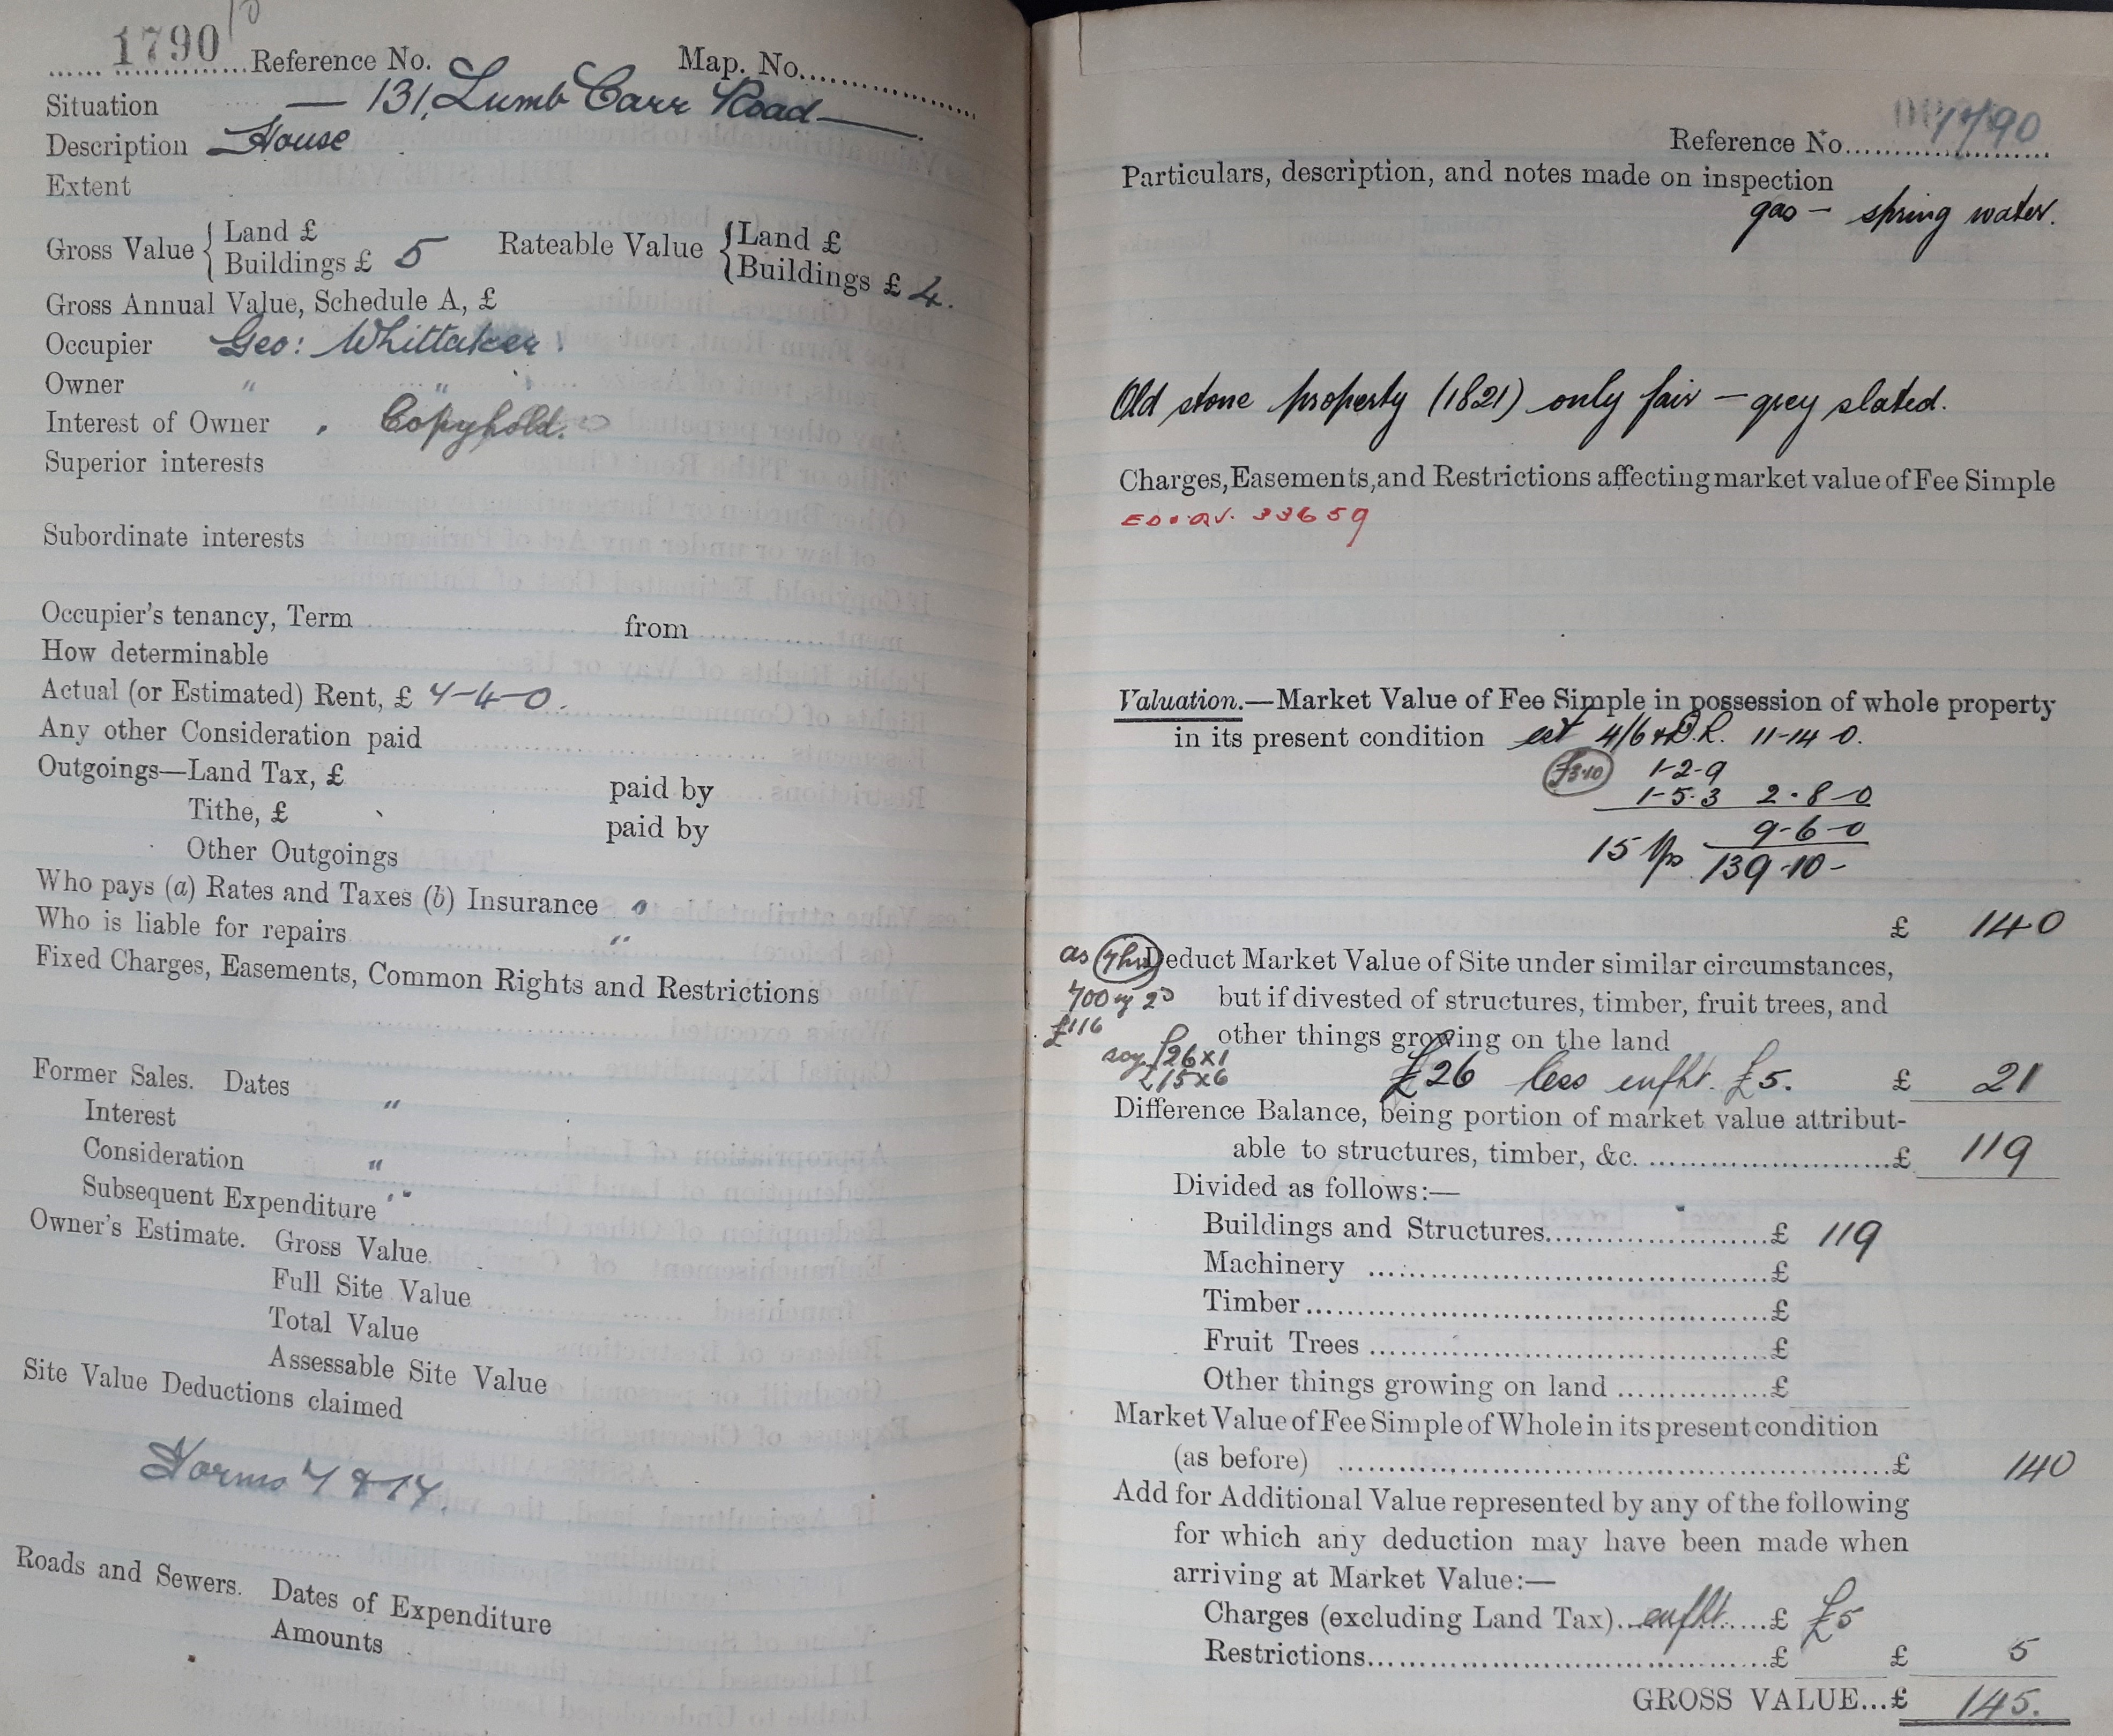 1790 Reference No. Map. No.
Situation — 131, Lumb Carr Road —
Description House
Extent
Gross Value { Land £ Rateable Value { Land £
Buildings £ 5 Buildings £ 4.
Gross Annual Value, Schedule A, £
Occupier Geo: Whittaker
Owner " " "
Interest of Owner Copyhold.
Superior interests
Subordinate interests
Occupier's tenancy, Term from
How determinable
Actual (or Estimated) Rent, £ 4-4-0.
Any other Consideration paid
Outgoings—Land Tax, £ paid by
Tithe, £ paid by
Other Outgoings
Who pays (a) Rates and Taxes (b) Insurance
Who is liable for repairs "
Fixed Charges, Easements, Common Rights and Restrictions
Former Sales. Dates
Interest "
Consideration "
Subsequent Expenditure "
Owner's Estimate. Gross Value
Full Site Value
Total Value
Assessable Site Value
Site Value Deductions claimed
Forms 7 & 14.
Roads and Sewers. Dates of Expenditure
Amounts
Reference No. 1790
Particulars, description, and notes made on inspection
gas — spring water.
Old stone property (1821) only fair — grey slated.
Charges, Easements, and Restrictions affecting market value of Fee Simple
33659
Valuation.—Market Value of Fee Simple in possession of whole property
in its present condition est 4/6 & D.R. 11-14-0.
£3.10 1-2-9
1-5-3 2-8-0
9-6-0
15 yp 139-10-
£ 140
as 7 hrs Deduct Market Value of Site under similar circumstances,
700 sy 2d but if divested of structures, timber, fruit trees, and
£116 other things growing on the land
say £26 x 1
£15 x 6
£26 less enfht. £5. £ 21
Difference Balance, being portion of market value attribut-
able to structures, timber, &c. £ 119
Divided as follows:—
Buildings and Structures £ 119
Machinery £
Timber £
Fruit Trees £
Other things growing on land £
Market Value of Fee Simple of Whole in its present condition
(as before) £ 140
Add for Additional Value represented by any of the following
for which any deduction may have been made when
arriving at Market Value:—
Charges (excluding Land Tax) enfht. £ £5
Restrictions £ £ 5
GROSS VALUE...£ 145.